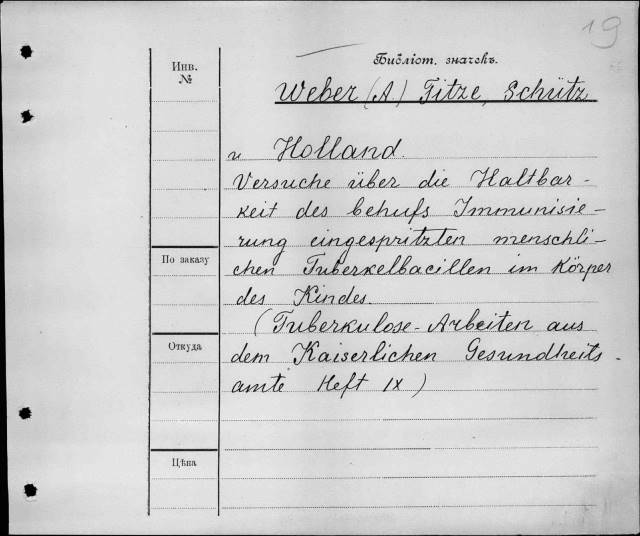 19
Библіот. значекъ.
Инв.
№
Weber (A) Titze, Schütz
u Holland.
Versuche über die Haltbar-
keit des behufs Immunisie-
rung eingespritzten menschli-
По заказу
chen Tuberkelbacillen im Körper
des Kindes
(Tuberkulose-Arbeiten aus
Откуда
dem Kaiserlichen Gesundheits-
amte Heft IX)
Цѣна